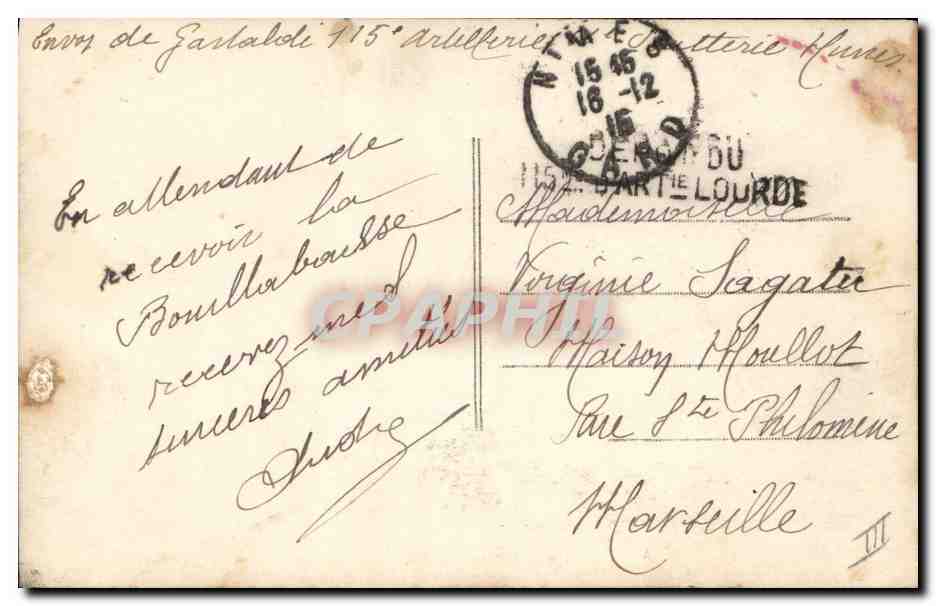 Envoi de Gastaldi 115e artillerie
NIMES
15 45
16 -12
15
GARD
DU
D'ARTIE LOURDE
En attendant de
recevoir la
Bouillabaisse
recevez mes
sinceres amitiés
Mademoiselle
Virginie Sagater
Maison Moullot
Rue Ste Philomène
Marseille
III
CPAPHIL